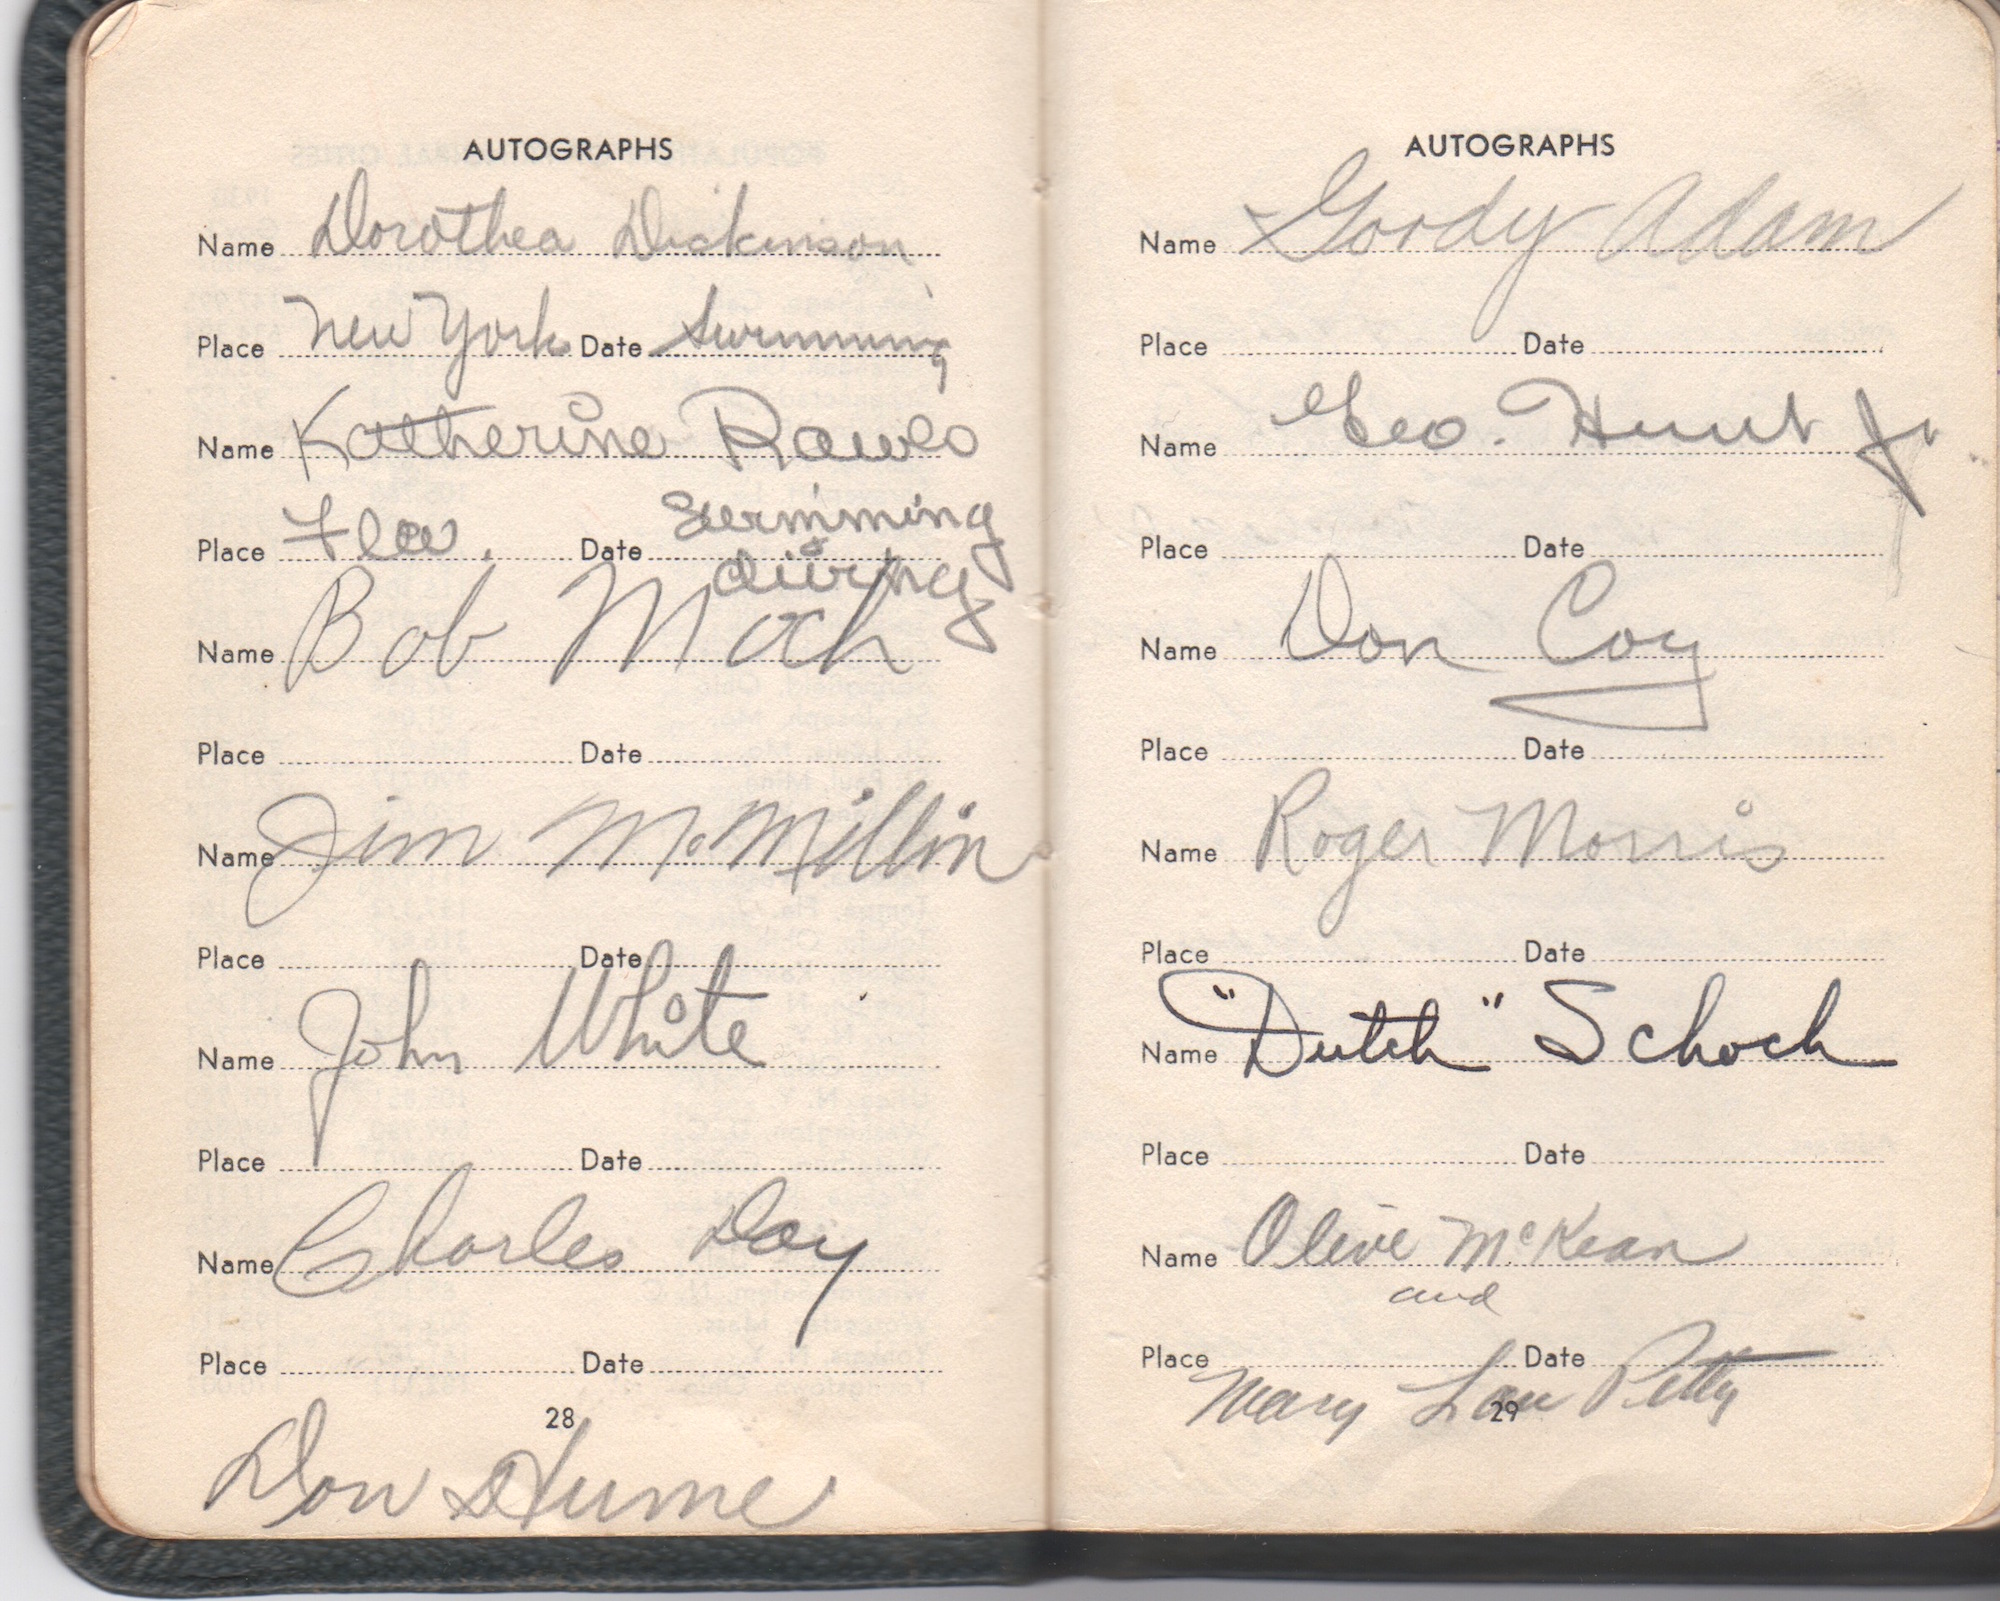 AUTOGRAPHS
Name Dorothea Dickinson
Place New York Date Swimming
Name Katherine Rawls
Place Fla. Date Swimming
& diving
Name Bob Moch
Place Date
Name Jim McMillin
Place Date
Name John White
Place Date
Name Charles Day
Place Date
28
Don Hume
AUTOGRAPHS
Name Gordy Adam
Place Date
Name Geo. Hunt Jr
Place Date
Name Don Coy
Place Date
Name Roger Morris
Place Date
Name "Dutch" Schoch
Place Date
Name Olive McKean
and
Place Date
Mary Lou Petty
29